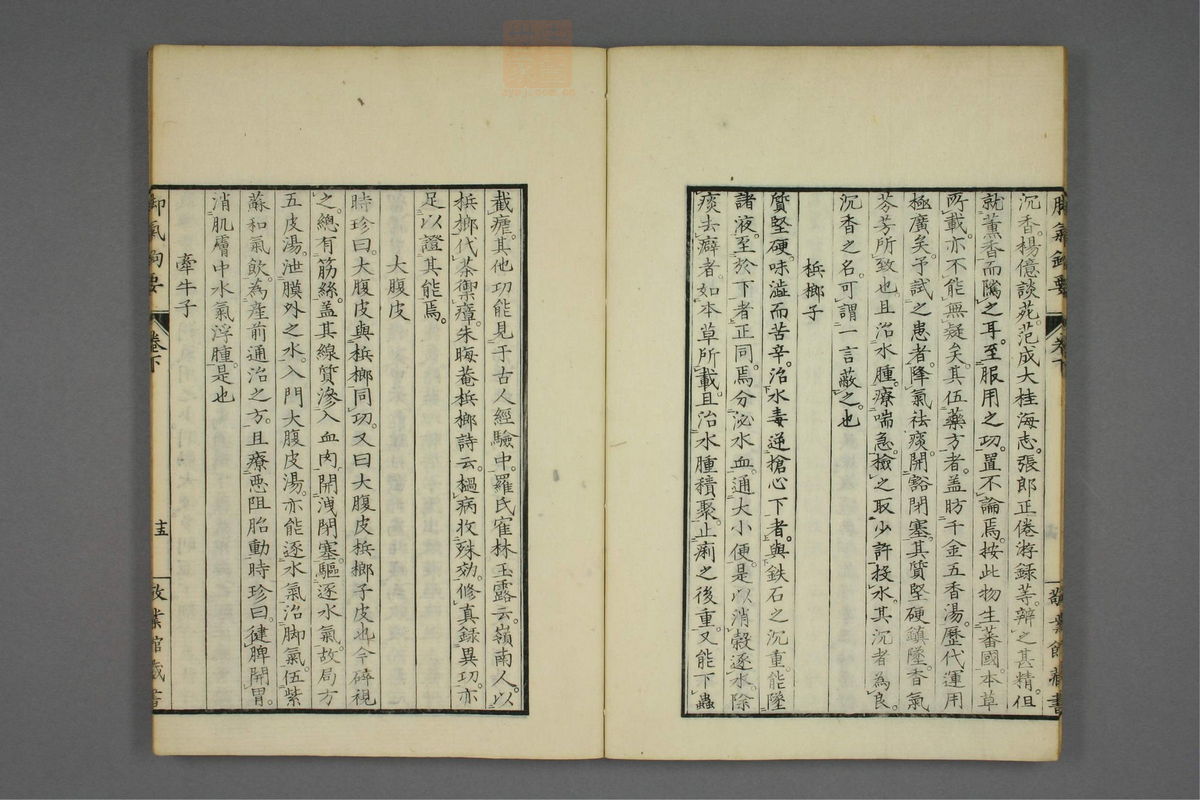 脚氣鉤要 卷下
沉香。楊億談苑。范成大桂海志。張郎正倦游録等。辨之甚精。但
就薰香而隲之耳。至服用之功。置不論焉。按此物生蕃國。本草
所載亦不能無疑矣。其伍藥方者。盖昉千金五香湯。歷代運用
極廣矣。予試之患者。降氣祛痰。開豁閉塞。其質堅硬鎮墜。香氣
芬芳所致也。且治水腫。療喘急。撿之取少許投水。其沉者為良。
沉香之名。可謂一言蔽之也
梹榔子
質堅硬。味澁而苦辛。治水毒逆搶心下者。與鉄石之沉重能墜
諸液。至於下者正同。焉分泌水血。通大小便。是以消穀逐水。除
痰去癖者。如本草所載。且治水腫積聚。止痢之後重。又能下蟲
截瘧。其他功能見于古人經驗中。羅氏寉林玉露云。嶺南人。以
梹榔代茶禦瘴。朱晦菴梹榔詩云。䤨病收殊効。修真録異功。亦
足以證其能焉。
大腹皮
時珍曰。大腹皮與梹榔同功。又曰大腹皮梹榔子皮也今碎視
之。總有筋絲。盖其線質滲入血肉。開洩閉塞。驅逐水氣。故局方
五皮湯。泄膜外之水。入門大腹皮湯。亦能逐水氣治脚氣。伍紫
蘇和氣飲。為産前通治之方。且療惡阻胎動時珍曰。健脾開胃。
消肌膚中水氣浮腫。是也
牽牛子
卷下
十五